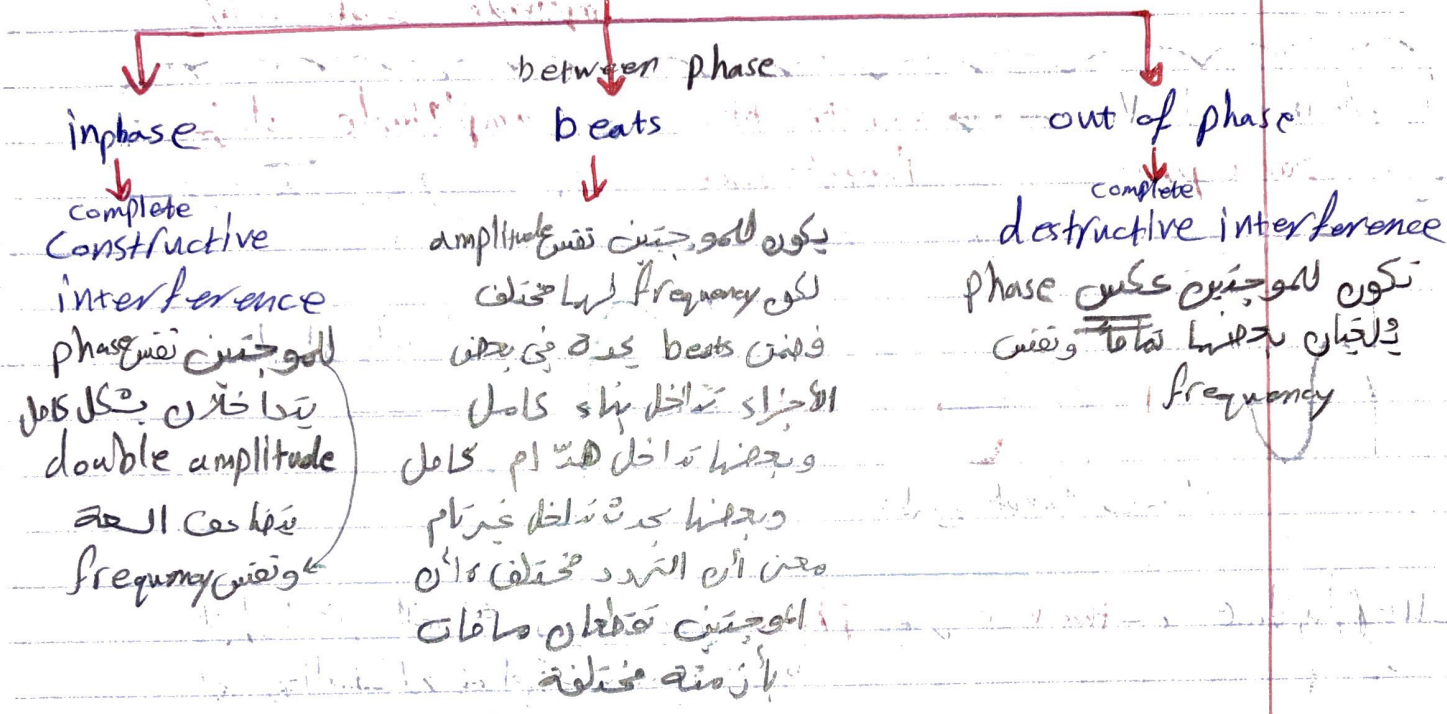 between phase
inphase
complete
constructive
interference
للموجتين نفس phase
يتداخلان بشكل كامل
double amplitude
يتضاعف السعة
ونفس frequency
beats
يكون للموجتين نفس amplitude
لكن frequency لهما مختلف
فضمن beats يحدث في بعض
الأجزاء تداخل بناء كامل
وبعضها تداخل هدّام كامل
وبعضها يحدث تداخل غير تام
معنى أن التردد مختلف أن
الموجتين تقطعان مسافات
بأزمنة مختلفة
out of phase
complete
destructive interference
تكون للموجتين عكس phase
بعضها تماماً ونفس
frequency